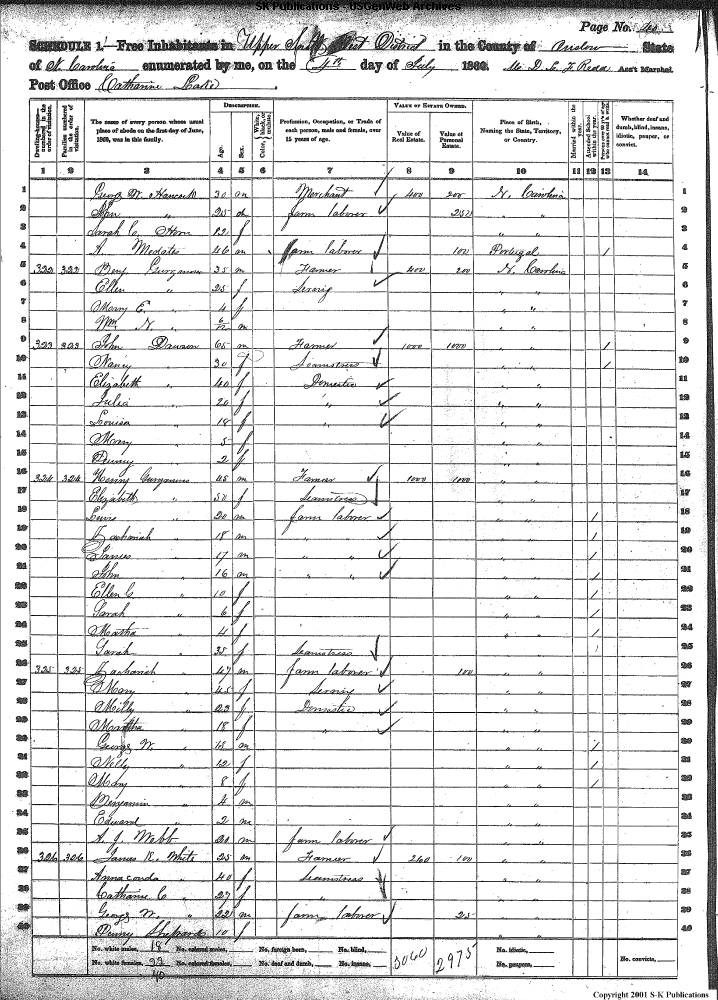 SK Publications - USGenWeb Archives
Page No. 40
SCHEDULE 1.—Free Inhabitants in Upper South West District in the County of Onslow State
of N. Carolina enumerated by me, on the 4th day of July 1860. Ass't Marshal.
Post Office Catharine Lake
DESCRIPTION. VALUE OF ESTATE OWNED.
Dwelling-houses— numbered in the order of visitation. Families numbered in the order of visitation. The name of every person whose usual place of abode on the first day of June, 1860, was in this family. Age. Sex. Color, {White, black, or mulatto. Profession, Occupation, or Trade of each person, male and female, over 15 years of age. Value of Real Estate. Value of Personal Estate. Place of Birth, Naming the State, Territory, or Country. Married within the year. Attended School within the year. Whether deaf and dumb, blind, insane, idiotic, pauper, or convict.
1 2 3 4 5 6 7 8 9 10 11 12 13 14
1 George W. Hancock 30 m Merchant 400 200 N. Carolina 1
2 " 25 farm laborer 250 " " 2
3 Sarah C. Horn 12 f " " 3
4 A. 46 m farm laborer 100 Portugal / 4
5 322 322 Benj 35 m Farmer 400 200 N. Carolina 5
6 Ellen " 25 f Serving " " 6
7 Mary E. " 4 f " " 7
8 Wm N " m " " 8
9 323 323 John Dawson 65 m Farmer 1000 1000 " " / 9
10 Nancy " 30 f Seamstress " " / 10
11 Elizabeth " 40 f Domestic " " 11
12 Julia " 20 f " " " 12
13 Louisa " 18 f " " " 13
14 Mary " 5 f " " 14
15 Penny " 2 f " " 15
16 324 324 Henry 45 m Farmer 1000 1000 " " 16
17 Elizabeth " 50 f Seamstress " " 17
18 Lewis " 20 m farm laborer " " / 18
19 Zachariah " 18 m " " " " / 19
20 James " 17 m " " " " / 20
21 John " 16 m " " " " / 21
22 Ellen C. " 10 f " " / 22
23 Sarah " 6 f " " / 23
24 Martha " 4 f " " / 24
25 Sarah " 35 f Seamstress " " / 25
26 325 325 Zachariah " 47 m farm laborer 100 " " 26
27 Mary " 45 f Serving " " 27
28 Milly " 23 f Domestic " " 28
29 Martha " 18 f " " " 29
30 George W. " m " " / 30
31 Nelly " 12 f " " / 31
32 Mary " 8 f " " / 32
33 Benjamin " 4 m " " 33
34 Edward " 2 m " " 34
35 A. J. Webb 20 m farm laborer " " 35
36 326 326 James R. White 25 m Farmer 260 100 " " 36
37 Annaconda " 40 f Seamstress " " 37
38 Catharine C " 27 f " " " 38
39 George W. " 22 m farm laborer 25 " " 39
40 Penny Shepard 10 f " " 40
No. white males, 18 No. colored males, No. foreign born, No. blind, 3060 2975 No. idiotic,
No. white females, 22 No. colored females, No. deaf and dumb, No. insane, No. paupers, No. convicts,
40
Copyright 2001 S-K Publications